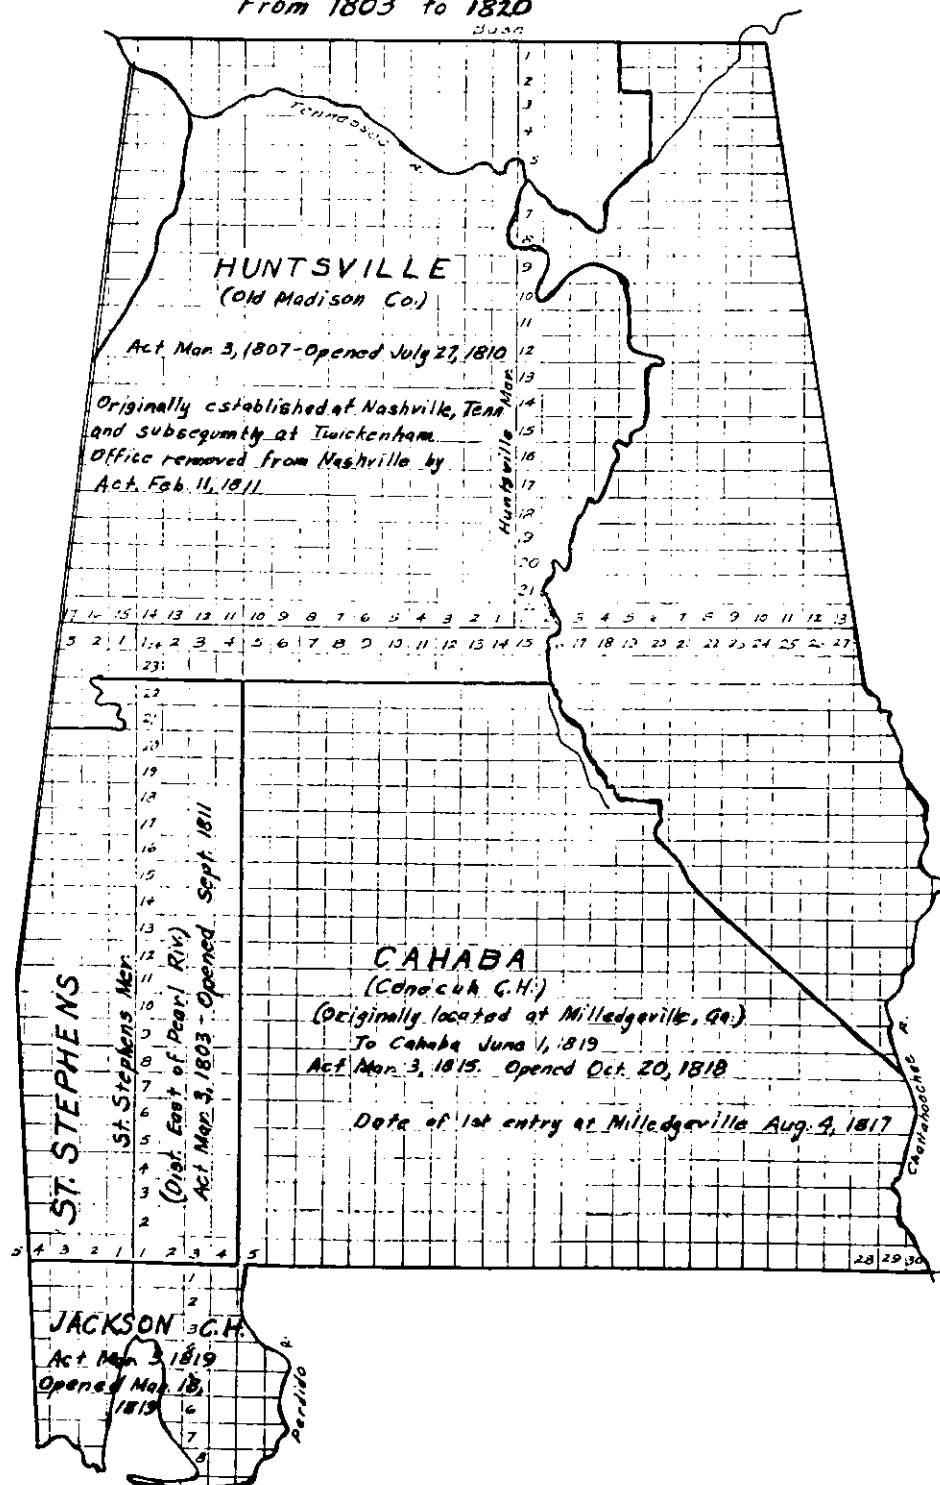 From 1803 to 1820
1
2
3
4
5
Tennessee R.
7
8
9
10
11
12
13
14
15
16
17
18
19
20
21
HUNTSVILLE
(Old Madison Co.)
Act Mar. 3, 1807 - Opened July 27, 1810
Originally established at Nashville, Tenn
and subsequntly at Twickenham
Office removed from Nashville by
Act, Feb. 11, 1811
Huntsville Mer.
17 16 15 14 13 12 11 10 9 8 7 6 5 4 3 2 1 2 3 4 5 6 7 8 9 10 11 12 13
3 2 1 1 2 3 4 5 6 7 8 9 10 11 12 13 14 15 17 18 19 20 21 22 23 24 25 26 27
23
22
21
20
19
18
17
16
15
14
13
12
11
10
9
8
7
6
5
4
3
2
ST. STEPHENS
St. Stephens Mer.
(Dist. East of Pearl Riv.)
Act Mar. 3, 1803 - Opened Sept. 1811
CAHABA
(Conecuh C.H.)
(Originally located at Milledgeville, Ga.)
To Cahaba June 1, 1819
Act Mar. 3, 1815. Opened Oct. 20, 1818
Date of 1st entry at Milledgeville Aug. 4, 1817
Chattahoochee R.
5 4 3 2 1 1 2 3 4 5
28 29 30
1
2
JACKSON 3 C.H.
Act Mar. 3 1819
Opened Mar. 18,
1819
6
7
8
Perdido R.